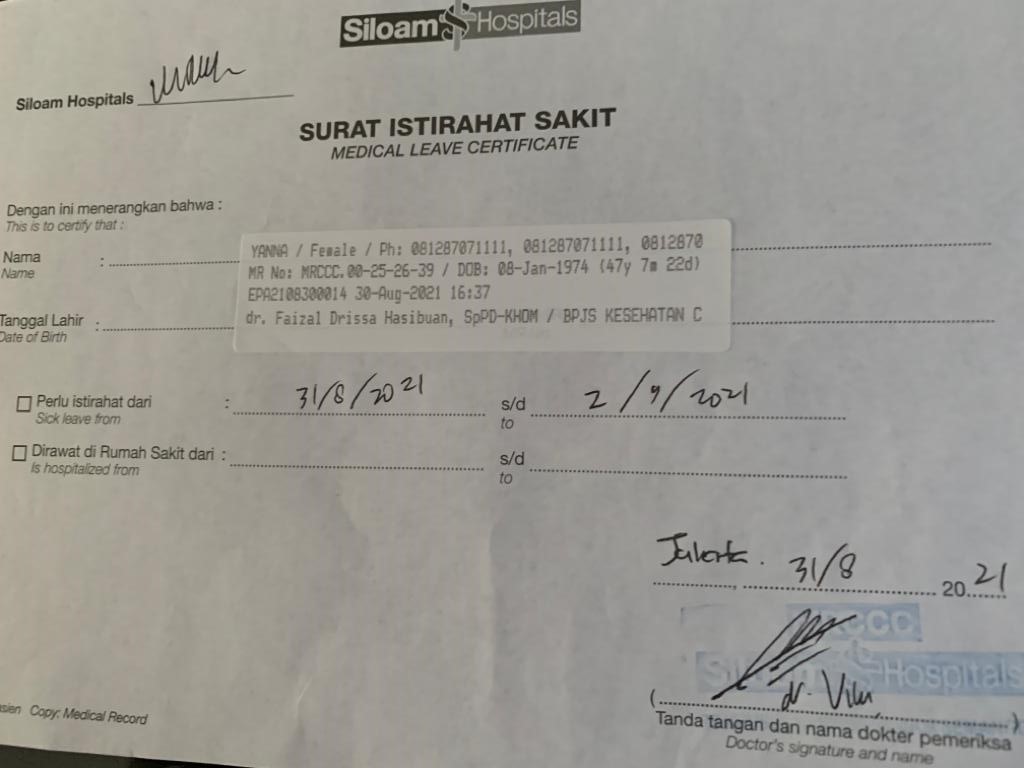 Siloam Hospitals
Siloam Hospitals
SURAT ISTIRAHAT SAKIT
MEDICAL LEAVE CERTIFICATE
Dengan ini menerangkan bahwa :
This is to certify that :
Nama :
Name
YANNA / Female / Ph: 081287071111, 081287071111, 0812870
MR No: MRCCC.00-25-26-39 / DOB: 08-Jan-1974 (47y 7m 22d)
EPA2108300014 30-Aug-2021 16:37
dr. Faizal Drissa Hasibuan, SpPD-KHOM / BPJS KESEHATAN C
Tanggal Lahir :
Date of Birth
Perlu istirahat dari : 31/8/2021 s/d 2/9/2021
Sick leave from to
Dirawat di Rumah Sakit dari : s/d
Is hospitalized from to
Jakarta. 31/8 2021
Siloam Hospitals
(dr. )
Tanda tangan dan nama dokter pemeriksa
Doctor's signature and name
Copy: Medical Record